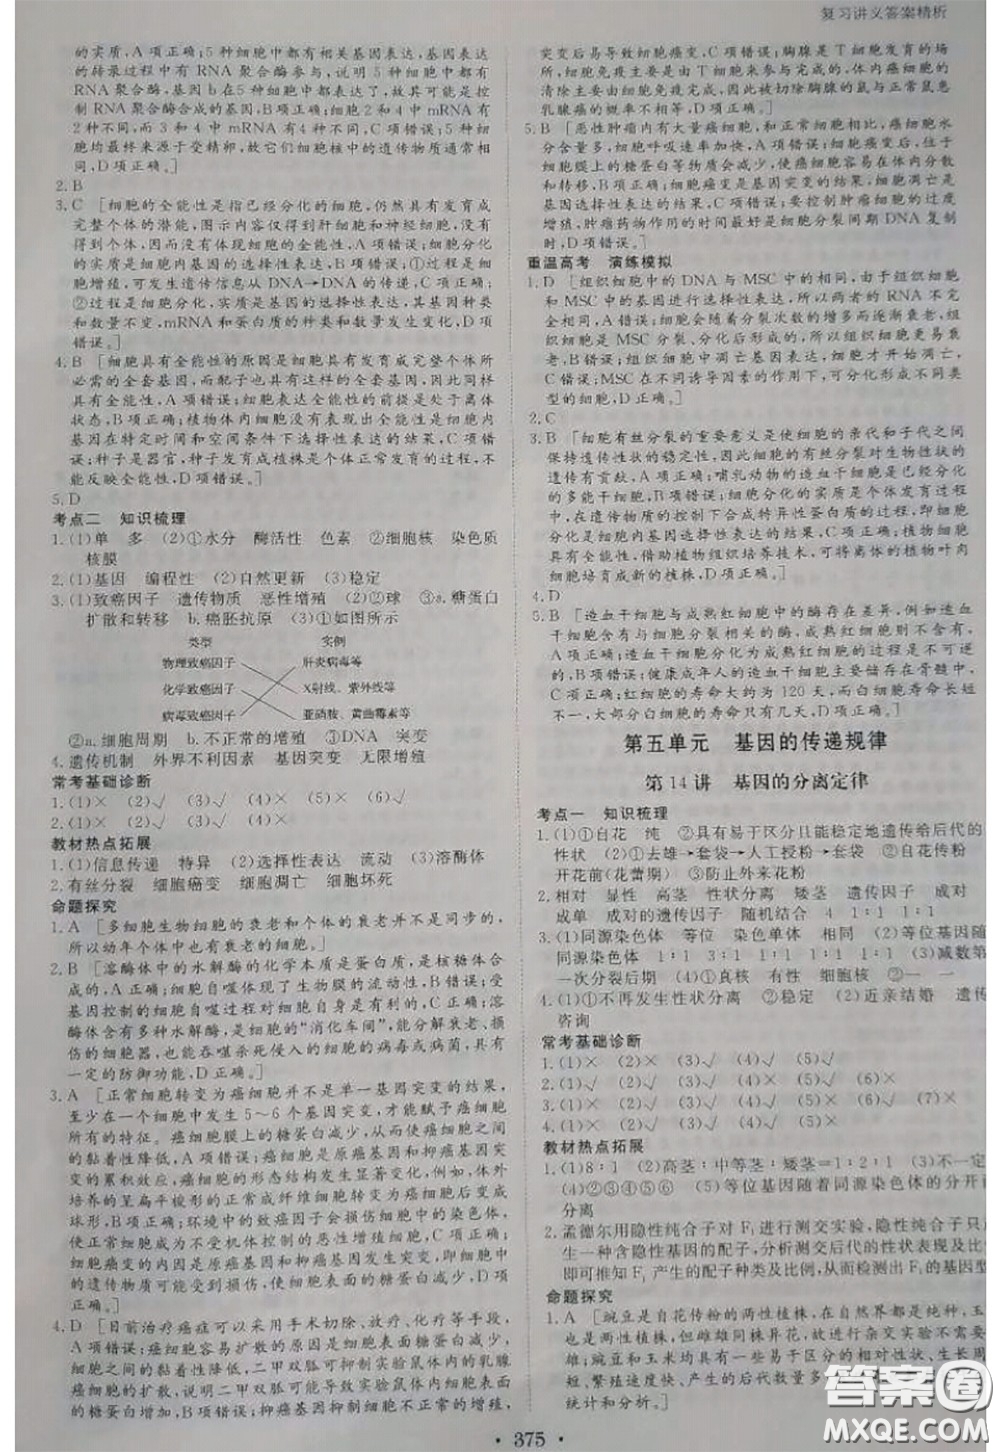 复习讲义答案精析
的实质,A项正确;5种细胞中都有相关基因表达,基因表达
的转录过程中有RNA聚合酶参与,说明5种细胞中都有RNA
聚合酶,基因b在5种细胞中都表达了,故其可能是控
制RNA聚合酶合成的基因,B项正确;细胞2和4中mRNA有
2种不同,而3和4中mRNA有3种不同,C项错误;5种细胞
均最终来源于受精卵,故它们细胞核中的遗传物质通常相
同,D项正确。]
2.B
3.C [细胞的全能性是指已经分化的细胞,仍然具有发育成
完整个体的潜能,图示内容仅得到肝细胞和神经细胞,没
有得到个体,所以没有体现细胞的全能性,A项错误;细胞分化
的实质是细胞内基因的选择性表达,B项错误;①过程是
细胞增殖,可发生遗传信息从DNA→DNA的传递,C项正确;
②过程是分化,实质是基因的选择性表达,其基因种类
和数量不变,mRNA和蛋白质的种类和数量发生变化,D项错
误。]
4.B [细胞具有全能性的原因是细胞具有发育成完整个体所
必需的全套基因,而配子也含有这样的全套基因,因此同样
具有全能性,A项错误;细胞表现全能性的前提是处于离体
状态,B项正确;植物体内细胞没有表现出全能性是细胞内
基因在特定时间和空间条件下选择性表达的结果,C项错
误;种子是器官,种子发育成植株是个体正常发育的结果,不
能反映全能性,D项错误。]
5.D
考点二 知识梳理
1.(1)单 多 (2)①水分 酶活性 色素 ②细胞核 染色质
核膜
2.(1)基因 编程性 (2)自然更新 (3)稳定
3.(1)致癌因子 遗传物质 恶性增殖 (2)②球 ③a.糖蛋白
扩散和转移 b.癌胚抗原 (3)①如图所示
类型 实例
物理致癌因子 肝炎病毒等
化学致癌因子 X射线、紫外线等
病毒致癌因子 亚硝胺、黄曲霉素等
②a.细胞周期 b.突变 ③DNA 突变
4.遗传机制 外界不利因素 基因 基因突变
常考基础诊断
1.(1)× (2)√ (3)√ (4)√
2.(1)× (2)√ (3)× (4)× (5)×
教材热点拓展
1.(1)信息传递 特异 (2)选择性表达 流动 (3)溶酶体
2.有丝分裂 细胞癌变 细胞凋亡 细胞坏死
命题探究
1.A [多细胞生物细胞的衰老和个体的衰老并不是同步的,
所以幼年个体中也有衰老的细胞。]
2.B [溶酶体中的水解酶的化学本质是蛋白质,是核糖体合
成的,细胞自噬过程体现了生物膜的流动性,A项错误;受
基因控制的细胞自噬过程对细胞自身是有利的,C项错误;溶
酶体含有多种水解酶,是细胞的“消化车间”,能分解衰老、损
伤的细胞器,也能吞噬杀死侵入细胞的病毒或病菌,具有
一定的防御功能,D项错误。]
3.A [正常细胞转变为癌细胞并不是单一基因突变的结果,
至少在一个细胞中发生5~6个基因突变,才能赋予癌细胞
所有的特征。癌细胞膜上的糖蛋白减少,从而导致癌细胞
的黏着性降低,A项错误;癌细胞是原癌基因和抑癌基因突
变的累积效应,癌细胞的形态结构发生显著变化,例如,体外
培养的呈扁平梭形的正常成纤维细胞转变为癌细胞后变成
球形,B项正确;环境中的致癌因子会损伤细胞中的染色体,
使细胞成为不受机体控制的恶性增殖细胞,C项正确;细胞
癌变的内因是原癌基因和抑癌基因发生突变,致癌因子中
的遗传物质可能受到损伤,使细胞表面的糖蛋白减少,D项
正确。]
4.D [目前治疗癌症可以采用手术切除、放疗、化疗等方法,A
项错误;癌细胞容易扩散的原因是细胞表面糖蛋白减少,
黏着性降低,二甲双胍可抑制实验鼠体内的乳腺
癌细胞的扩散,说明二甲双胍可能导致实验鼠体内癌细
胞表面的糖蛋白增加,B项错误;癌细胞具有无限增殖,
突变后易导致细胞癌变,C项错误;胸腺是T细胞发育的场
所,细胞免疫主要是由T细胞来参与完成的,体内癌细胞的
清除主要由细胞免疫完成,因此被切除胸腺的鼠与正常鼠患
乳腺癌的概率不相等,D项正确。]
5.B [恶性肿瘤内有大量癌细胞,与正常细胞相比,癌细胞水
分含量多,细胞呼吸速率加快,A项错误;癌变后,由于
细胞膜上的糖蛋白等物质会减少,使癌细胞容易在体内分散
和转移,B项正确;细胞癌变是基因突变的结果,细胞凋亡是
基因选择性表达的结果,C项错误;要控制肿瘤细胞的过度
增殖,肿瘤药物作用的时间最好是细胞分裂间期DNA复制
时,D项错误。]
重温高考 演练模拟
1.D [组织细胞中的DNA与MSC中的相同,由于组织细胞
和MSC中的基因进行选择性表达,所以两者的RNA不完
全相同,A错误;随着分裂次数的增多而逐渐衰老,组
织细胞是MSC分裂、分化后形成的,所以组织细胞更易衰
老,B错误;组织细胞中凋亡基因表达,细胞才开始凋亡,
C错误;MSC在不同诱导因素的作用下,可分化形成不同类
型的细胞,D正确。]
2.C
3.B [细胞有丝分裂的重要意义是使细胞的亲代和子代之间
保持遗传性状的稳定性,因此细胞的有丝分裂对生物性状的
遗传有贡献,A项正确;哺乳动物的造血干细胞是分化
的多能干细胞,B项错误;细胞分化是细胞在发育过程中,
在遗传物质的控制下合成特异性蛋白质的过程,也就是
细胞内基因选择性表达的结果,C项正确;植物细胞具有全
能性,借助植物组织培养技术,可将离体的植物叶肉
细胞培养成新的植株,D项正确。]
4.D
5.B [造血干细胞与成熟红细胞中的酶存在差异,例如造血干
细胞含有与细胞分裂相关的酶,而成熟红细胞中没有,A项
错误;造血干细胞分化为成熟红细胞的过程是不可逆
的,B项正确;健康成年人的造血干细胞主要储存在骨髓中,C
项错误;红细胞的寿命大约为120天,而白细胞寿命长短
不一,大部分白细胞的寿命只有几天,D项错误。]
第五单元 基因的传递规律
第14讲 基因的分离定律
考点一 知识梳理
1.(1)①自花 纯 ②具有易于区分且能稳定地遗传给后代的
性状 (2)①去雄→套袋→人工授粉→套袋 ②自花传粉
开花前(花蕾期) ③防止外来花粉
2.相对 显性 高茎 性状分离 矮茎 遗传因子 成对
成单 成对的遗传因子 随机结合 4 1∶1 1∶1
3.(1)同源染色体 等位 染色单体 相同 (2)等位基因随
同源染色体 1∶1 3∶1 1∶1 1∶1 1∶1 (3)减数第
一次分裂后期 (4)①真核 有性 细胞核 ②一 一
4.(1)①不再发生性状分离 ②稳定 (2)近亲结婚 遗传
咨询
常考基础诊断
1.(1)× (2)× (3)√ (4)√ (5)√
2.(1)√ (2)√ (3)√ (4)× (5)×
3.(1)× (2)√ (3)√ (4)× (5)√ (6)√ (7)×
4.(1)√ (2)√ (3)× (4)× (5)√
教材热点拓展
1.(1)8∶1 (2)高茎∶中等茎∶矮茎=1∶2∶1 (3)不一定
(4)②③④⑤⑥ (5)等位基因随着同源染色体的分开而
分离
2.孟德尔用隐性纯合子对F₁进行测交实验,隐性纯合子只产
生一种含隐性基因的配子,分析测交后代的性状表现及比例
即可推知F₁产生的配子种类及比例,从而检测出F₁的基因型
命题探究
1.A [豌豆是自花传粉的两性植株,在自然界都是纯种,玉
米为两性植株,但雌雄同株异花,故杂交实验不需要去
雄;豌豆和玉米均具有易于区分的相对性状,生长周期
短、繁殖速度快、产生的后代数量多
统计与分析。]
* 375 *
答案圈
MXQE.COM